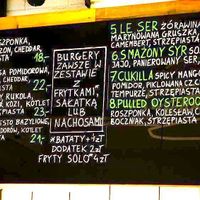 SZPONKA,
ON, CHEDAR,
18,-
SA POMIDOROWA,
CHEDAR,
ISTA 22,-
RUKOLA,
KOZI, KOTLET
PIASTA 23,-
BAZYLIOWE,
ROWY, KOTLET
21,-
BURGERY
ZAWSZE W
ZESTAWIE
Z
FRYTKAMI,
SAŁATKĄ
LUB
NACHOSAMI
*BATATY + 4zł
DODATEK 2zł
FRYTY SOLO 4zł
5. LE SER ŻÓRAWINA
MARYNOWANA GRUSZKA,
CAMEMBERT, STRZĘPIASTA
6. SMAŻONY SYR SO
JAJO, PANIEROWANY SER,
7. CUKIŁŁA SPICY MANGO
POMIDOR, PIKLOWANA CZ
TEMPURZE, STRZĘPIASTA
8. PULLED OYSTEROO
ROSZPONKA, COLESŁAW,
BOCZNIAK, STRZĘPIASTA